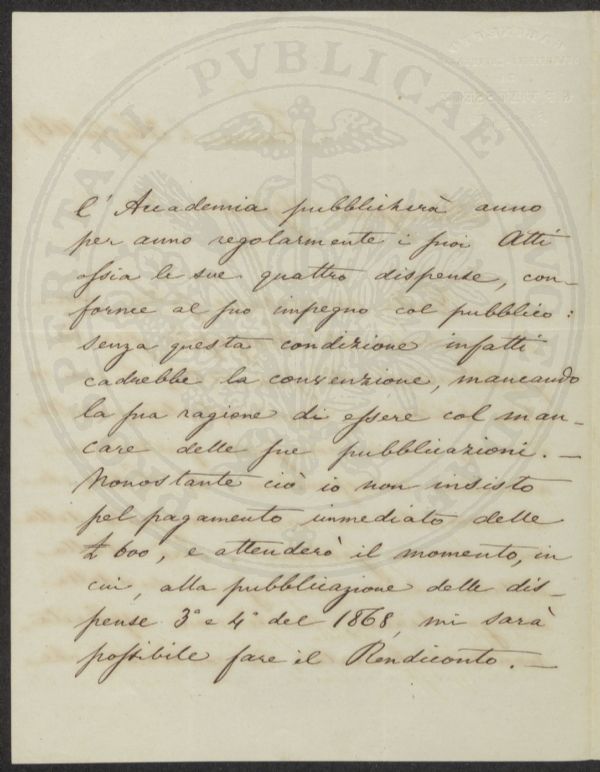 PROSPERITATI PVBLICAE
l'Accademia pubblicherà anno
per anno regolarmente i suoi Atti
ossia le sue quattro dispense, con-
forme al suo impegno col pubblico:
senza questa condizione infatti
cadrebbe la convenzione, mancando
la sua ragione di essere col man-
care delle sue pubblicazioni. —
Nonostante ciò io non insisto
pel pagamento immediato delle
£ 600, e attenderò il momento, in
cui, alla pubblicazione delle dis-
pense 3ª e 4ª del 1868, mi sarà
possibile fare il Rendiconto. —